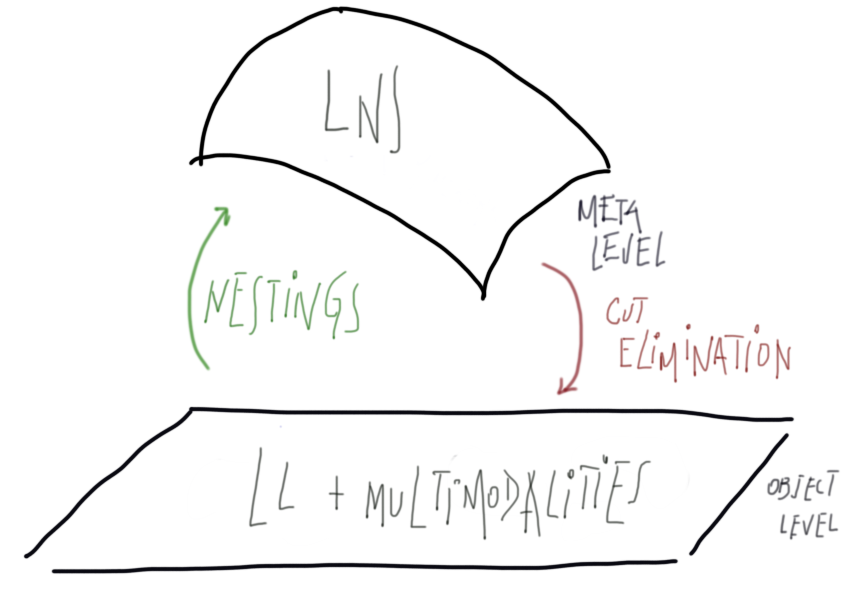 LNS
META
LEVEL
NESTINGS
CUT
ELiMiNATiON
LL + MULTiMODALiTiES
OBJECT
LEVEL